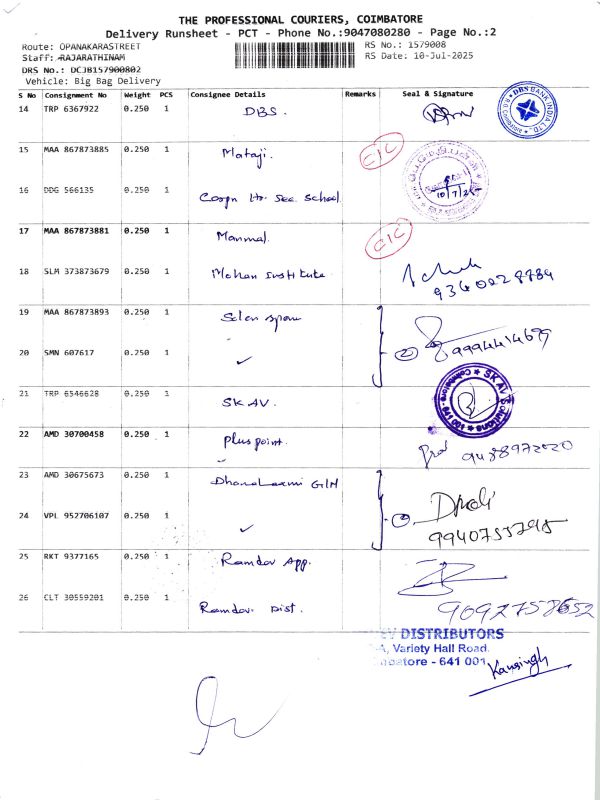 THE PROFESSIONAL COURIERS, COIMBATORE
Delivery Runsheet - PCT - Phone No.:9047080280 - Page No.:2
Route: OPANAKARASTREET RS No.: 1579008
Staff: RAJARATHINAM RS Date: 10-Jul-2025
DRS No.: DCJB157900802
Vehicle: Big Bag Delivery
S No Consignment No Weight PCS Consignee Details Remarks Seal & Signature
14 TRP 6367922 0.250 1 DBS.
DBS BANK INDIA LTD.
15 MAA 867873885 0.250 1 Mataji. CIC
16 DDG 566135 0.250 1 Corpn Hr. Sec. School 10/7/25
17 MAA 867873881 0.250 1 Manmal. CIC
18 SLM 373873679 0.250 1 Mohan Institute
9340028784
19 MAA 867873893 0.250 1
20 SMN 607617 0.250 1 ✓ 2 9994414679
21 TRP 6546628 0.250 1 SKAV. SK AV Solutions Coimbatore - 641 001
22 AMD 30700458 0.250 1 Pluspoint. 9488972020
23 AMD 30675673 0.250 1 DhanaLaxmi GIN
24 VPL 952706107 0.250 1 ✓ 9940755798
25 RKT 9377165 0.250 1 Ramdev App.
26 CLT 30559201 0.250 1 Ramdev. Dist. 9092758652
DISTRIBUTORS
A, Variety Hall Road.
batore - 641 001.
Kansingh